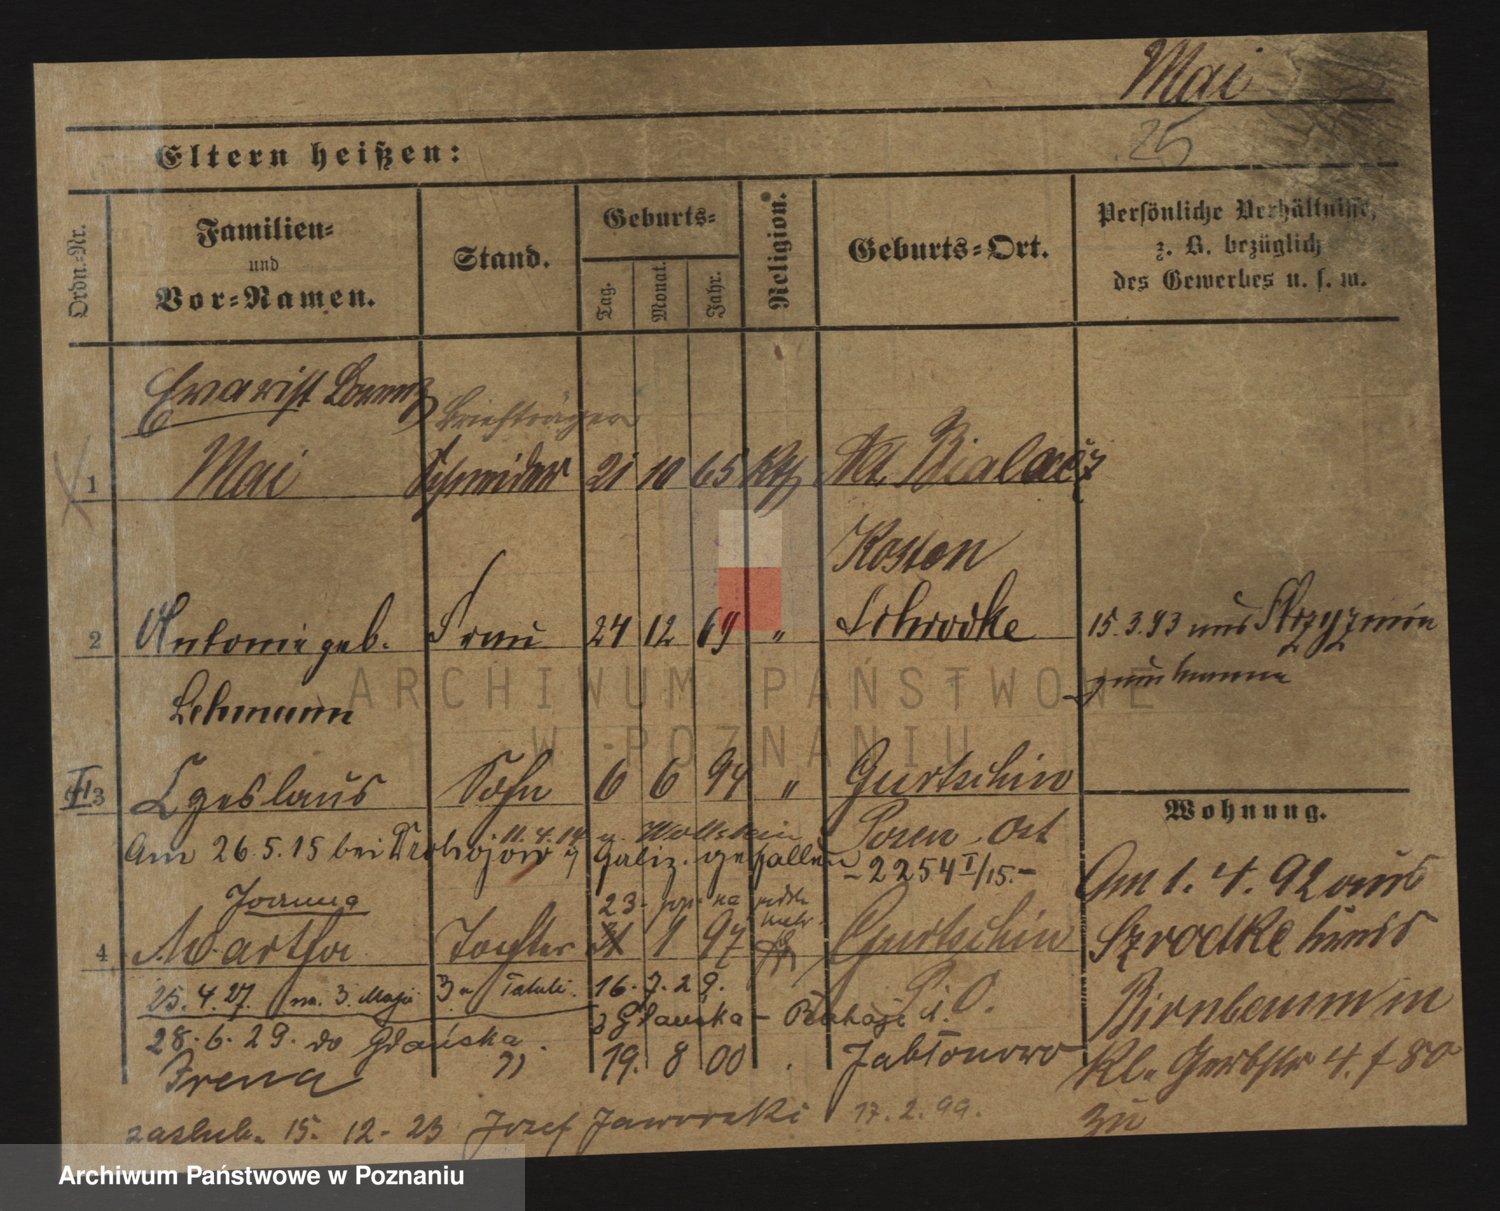 Mai
25
Eltern heißen:
Ordn.-Nr.
Familien-
und
Vor-Namen.
Stand.
Geburts-
Tag.
Monat.
Jahr.
Religion.
Geburts-Ort.
Persönliche Verhältnisse,
z. B. bezüglich
des Gewerbes u. s. w.
Evarist
Briefträger
1 Mai Schneider 21 10 65 Kth
Kosten
2 Antonie geb. Frau 24 12 69 " Schrodke
15.3.93 aus
Lehmann
3 Czeslaus Sohn 6 6 94 " Gurtschin
11.4.14 n. Wollstein Posen-Ost
Am 26.5.15 bei Galiz. gefallen
- 2254 I/15.-
Joanna 23
4 Martha Tochter 1 97 Gurtschin
P. O.
25.4.27. na 3. Maja 3 16.7.29.
z Gdańska
28.6.29. do Gdańska.
Irena 19. 8 00 . Jabłonowo
zaslub. 15. 12-23 Jozef Jaworski 17.2.99.
Wohnung.
Am 1.4.92 aus
Szrodke Kreis
Birnbaum in
Kl. Gerbstr 4. f 80
zu
ARCHIWUM PAŃSTWOWE
W POZNANIU
Archiwum Państwowe w Poznaniu